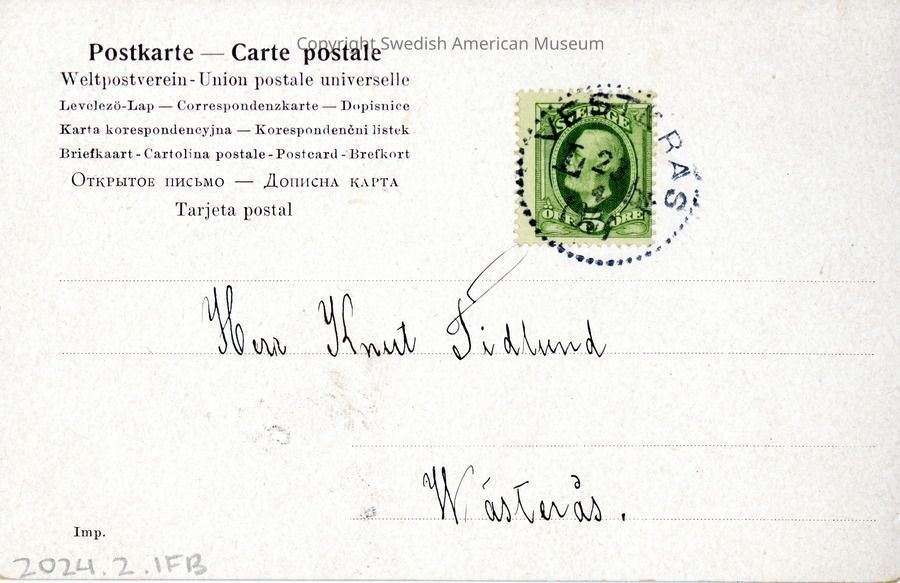 Copyright Swedish American Museum
Postkarte — Carte postale
Weltpostverein - Union postale universelle
Levelezö-Lap — Correspondenzkarte — Dopisnice
Karta korespondencyjna — Korespondenční listek
Briefkaart - Cartolina postale - Postcard - Brefkort
Открытое письмо — Дописна карта
Tarjeta postal
SVERIGE
VESTERÅS
ÖRE 5 ÖRE
Herr Knut Tidlund
Wästerås.
Imp.
2024.2.1FB